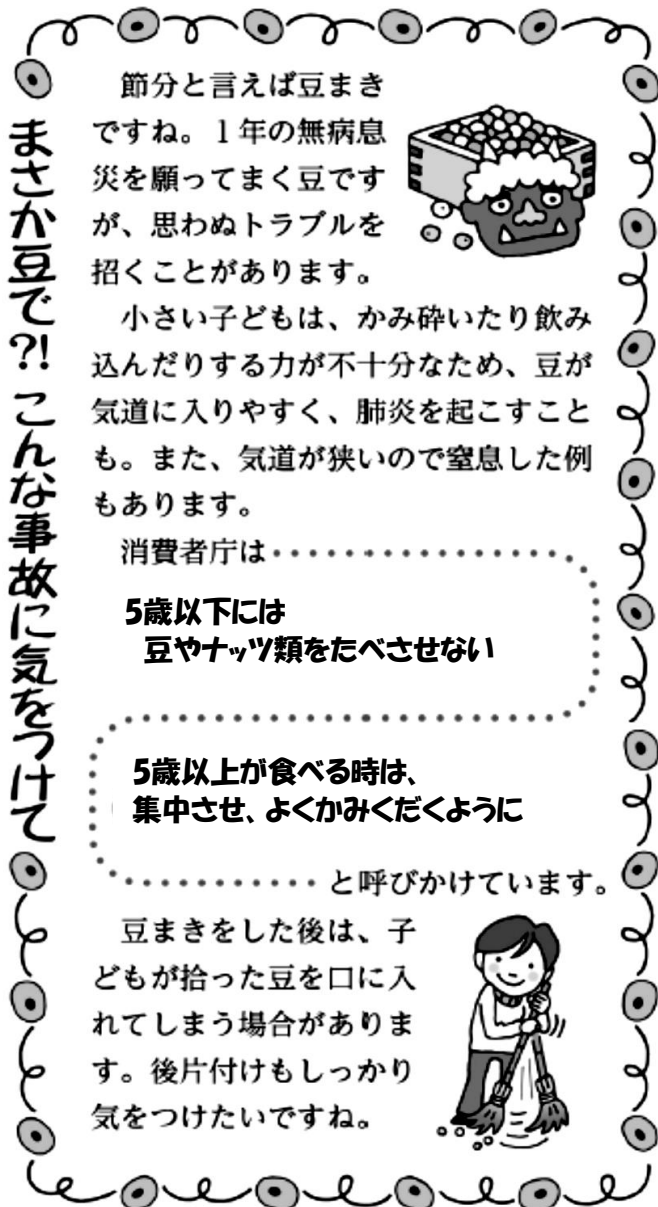 まさか豆で?! こんな事故に気をつけて
節分と言えば豆まき
ですね。1年の無病息
災を願ってまく豆です
が、思わぬトラブルを
招くことがあります。
小さい子どもは、かみ砕いたり飲み
込んだりする力が不十分なため、豆が
気道に入りやすく、肺炎を起こすこと
も。また、気道が狭いので窒息した例
もあります。
消費者庁は
5歳以下には
豆やナッツ類をたべさせない
5歳以上が食べる時は、
集中させ、よくかみくだくように
と呼びかけています。
豆まきをした後は、子
どもが拾った豆を口に入
れてしまう場合がありま
す。後片付けもしっかり
気をつけたいですね。